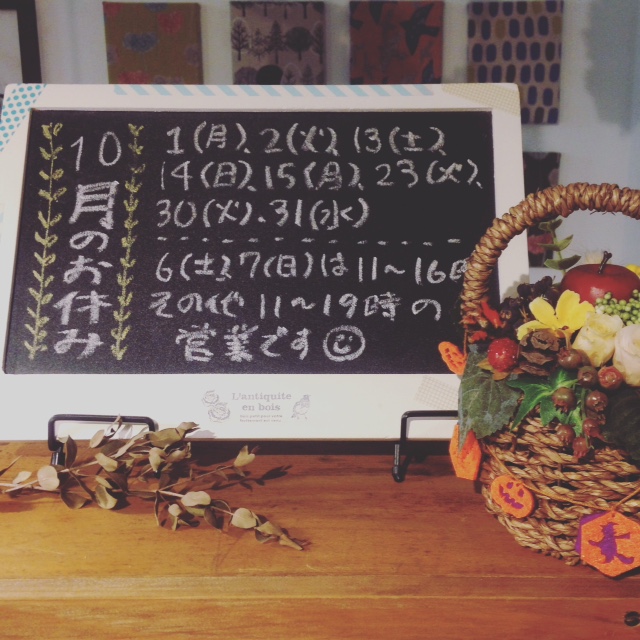 10月のお休み
1(月)、2(火)、13(土)、
14(日)、15(月)、23(火)、
30(火)、31(水)
6(土)、7(日)は11〜16時
その他 11〜19時の
営業です
L'antiquite
en bois